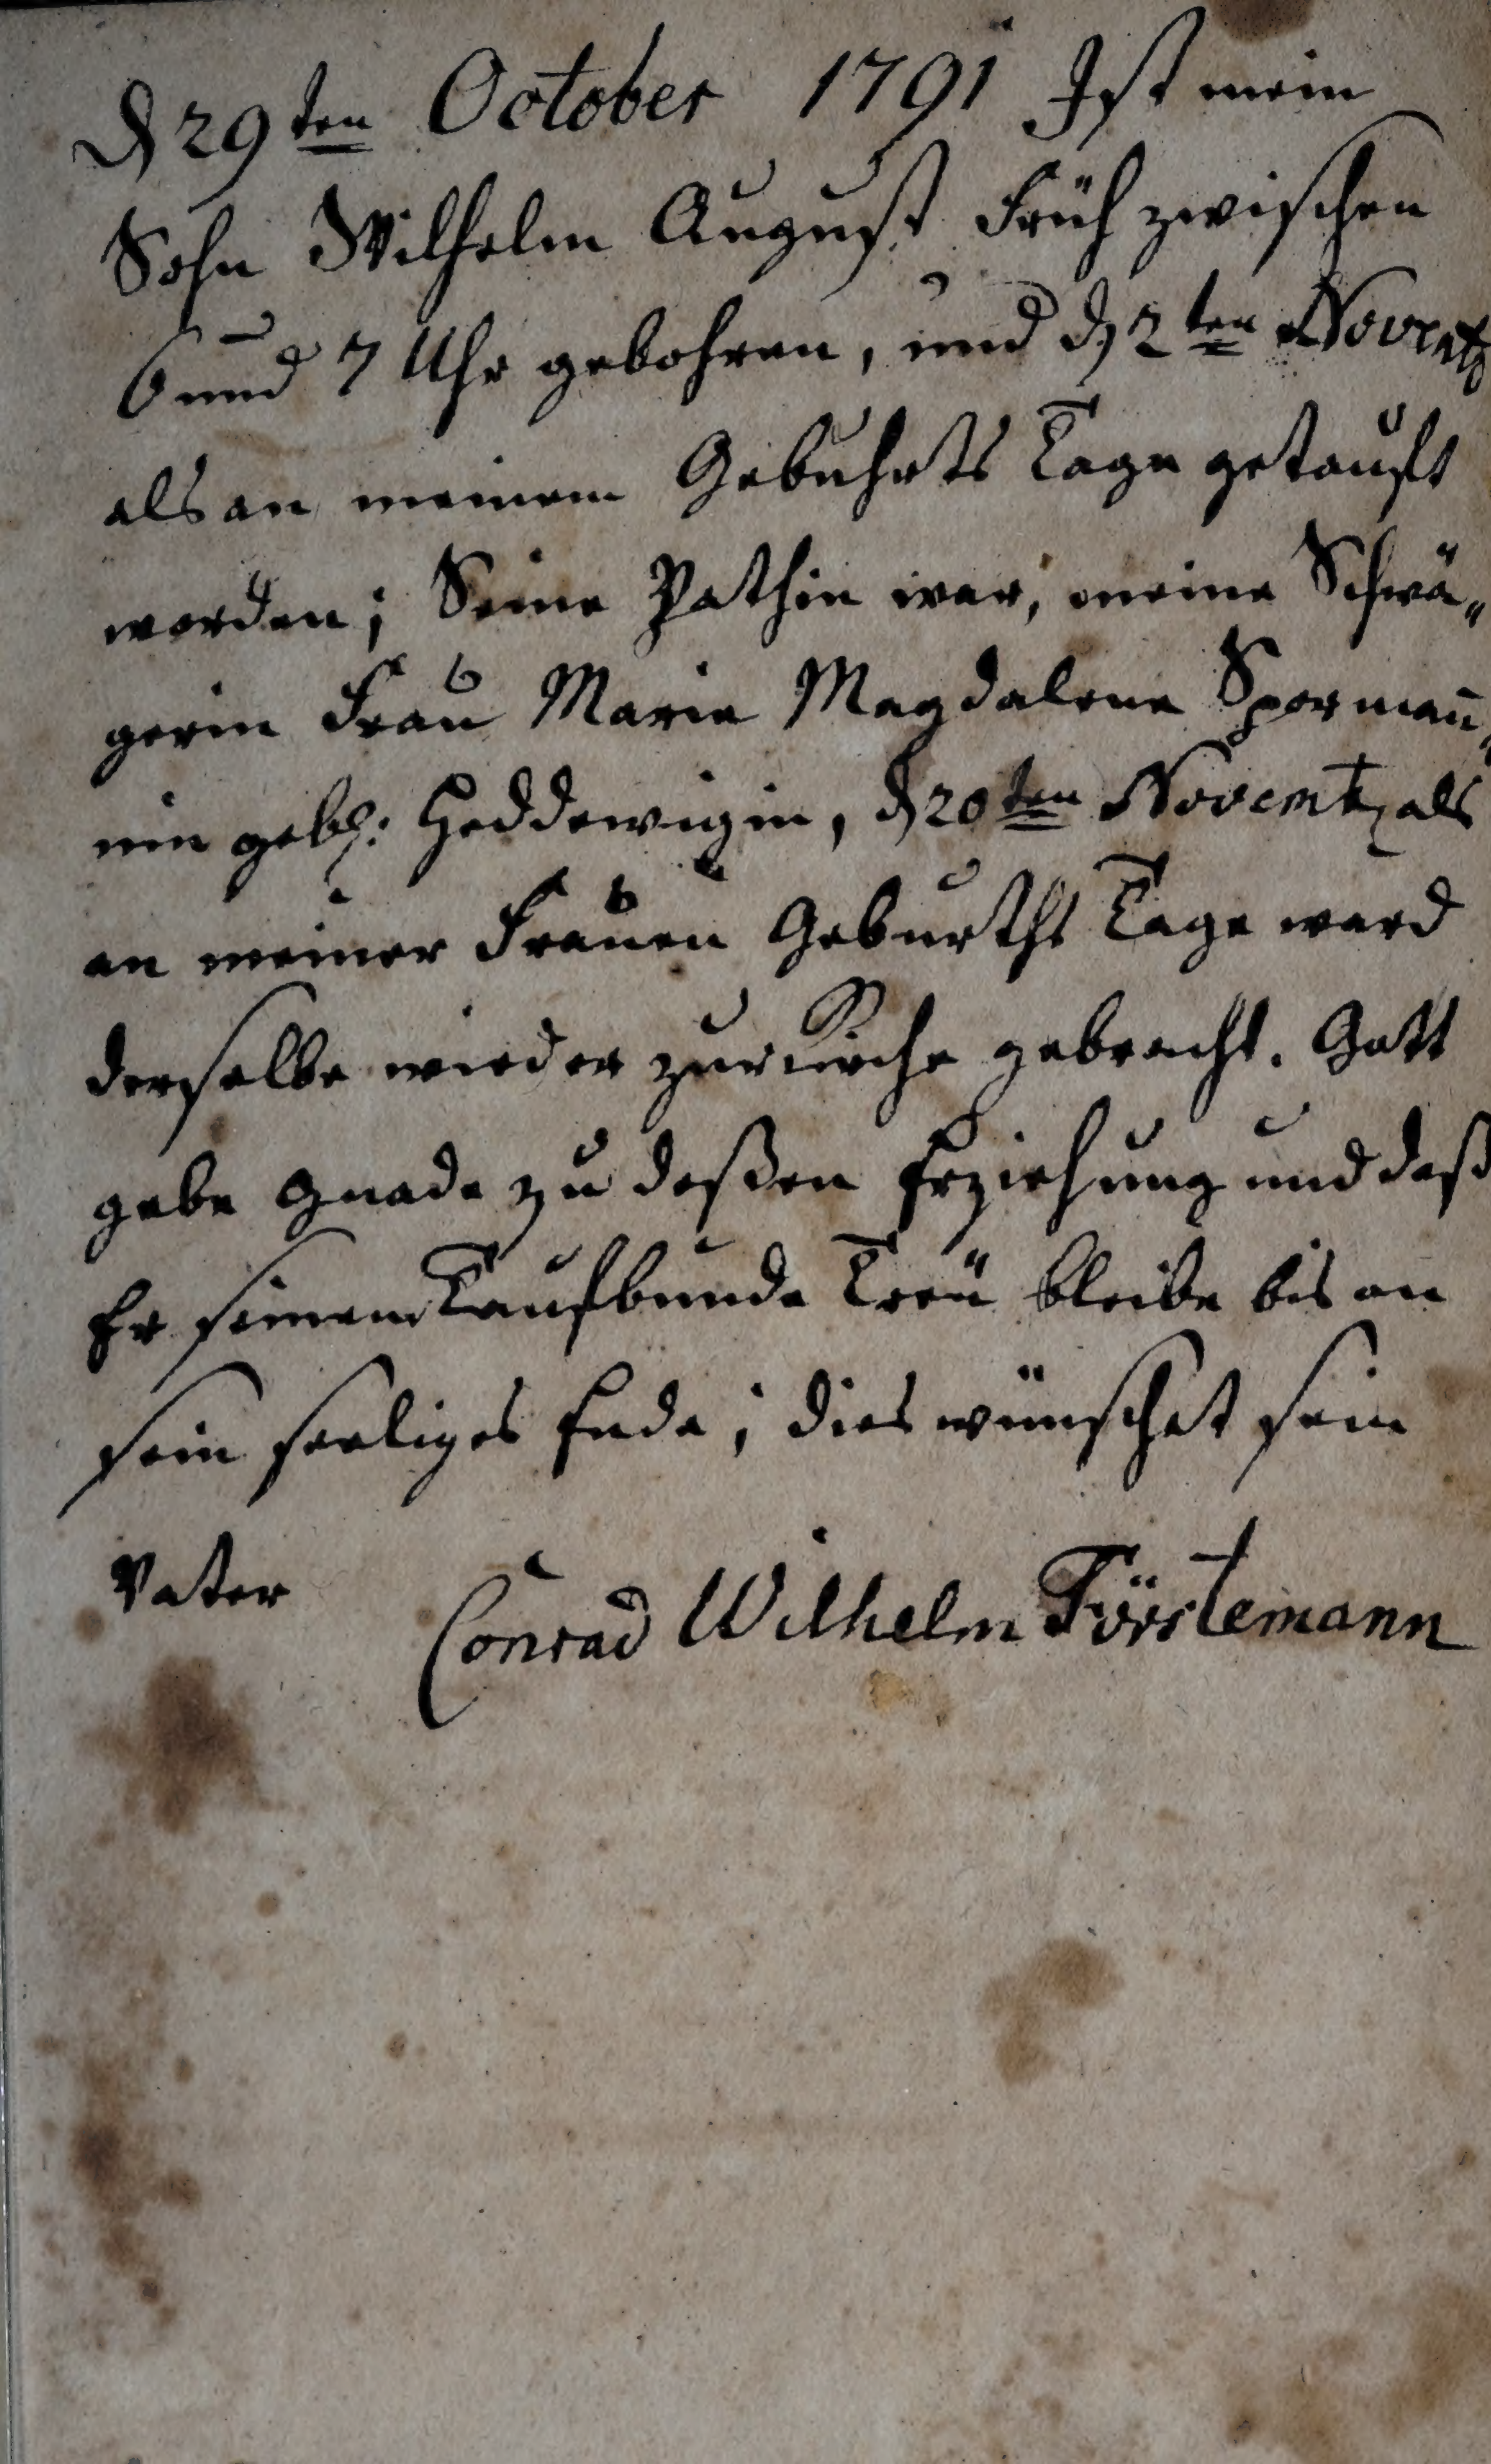 d 29ten October 1791 Ist mein
Sohn Wilhelm August Früh zwischen
6 und 7 Uhr gebohren, und d 2ten Novembr
als an meinem Gebuhrts Tage getauft
worden; Seine Pathin war, meine Schwä„
gerin Frau Maria Magdalena Spormañ„
nin gebh: Heddewigin, d 20ten Novembr als
an meiner Frauen Geburths Tage ward
derselbe wieder zur Kirche gebracht. Gott
gebe Gnade zu deßen Erziehung und daß
Er seinem Taufbunde Treü bleibe bis an
sein seeliges Ende; dies wünschet sein
Vater Conrad Wilhelm Förstemann